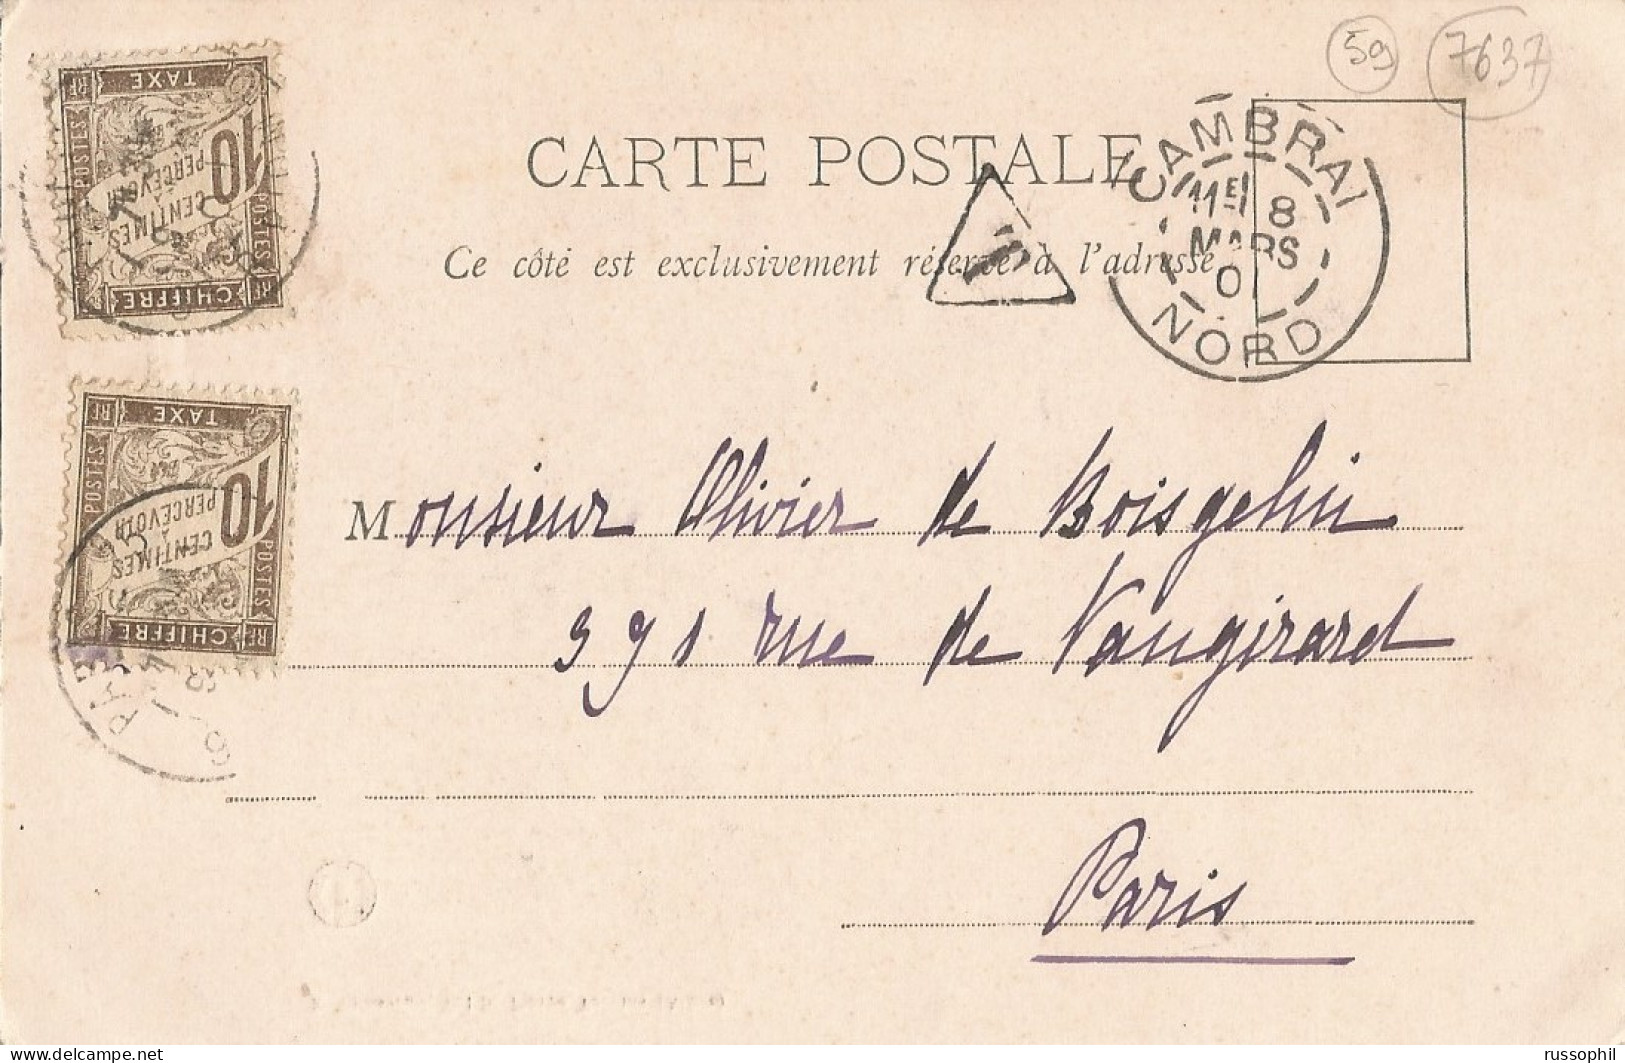 59 7637
CARTE POSTALE
Ce côté est exclusivement réservé à l'adresse
CAMBRAI
11E 8
MARS
0
NORD
TAXE
RF
POSTES
10
CENTIMES
À
PERCEVOIR
POSTES
RF CHIFFRE RF
TAXE
RF
POSTES
10
CENTIMES
À
PERCEVOIR
POSTES
RF CHIFFRE RF
Monsieur Olivier de Boisgelin
391 rue de Vaugirard
Paris
delcampe.net
russophil